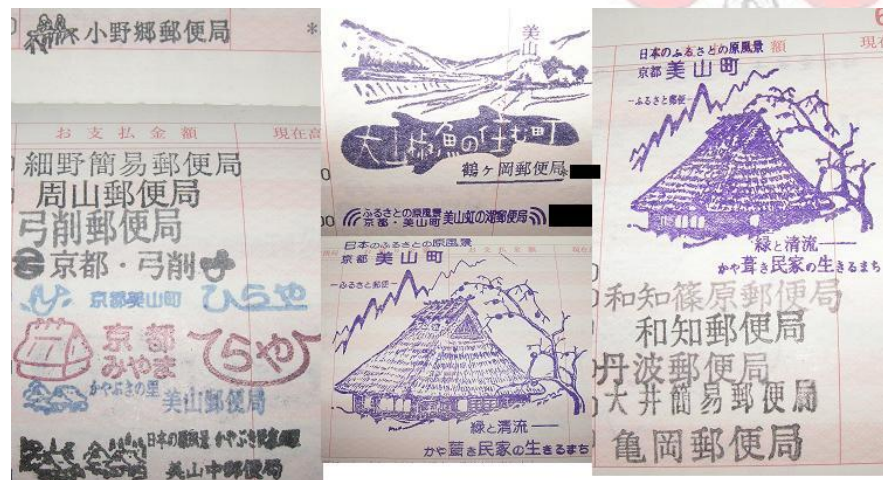 小野郷郵便局
*
お支払金額 現在高
細野簡易郵便局
周山郵便局
弓削郵便局
京都・弓削
京都美山町 ひらや
京都
みやま
ひらや
かやぶきの里
美山郵便局
日本の原風景 かやぶき
美山中郵便局
美山
大山椒魚の住む町
鶴ヶ岡郵便局
ふるさとの原風景
京都・美山町 美山虹の湖郵便局
日本のふるさとの原風景
京都 美山町
ーふるさと郵便ー
緑と清流
かや葺き民家の生きるまち
6
額 現在
日本のふるさとの原風景
京都 美山町
ーふるさと郵便ー
緑と清流
かや葺き民家の生きるまち
和知篠原郵便局
和知郵便局
丹波郵便局
大井簡易郵便局
亀岡郵便局